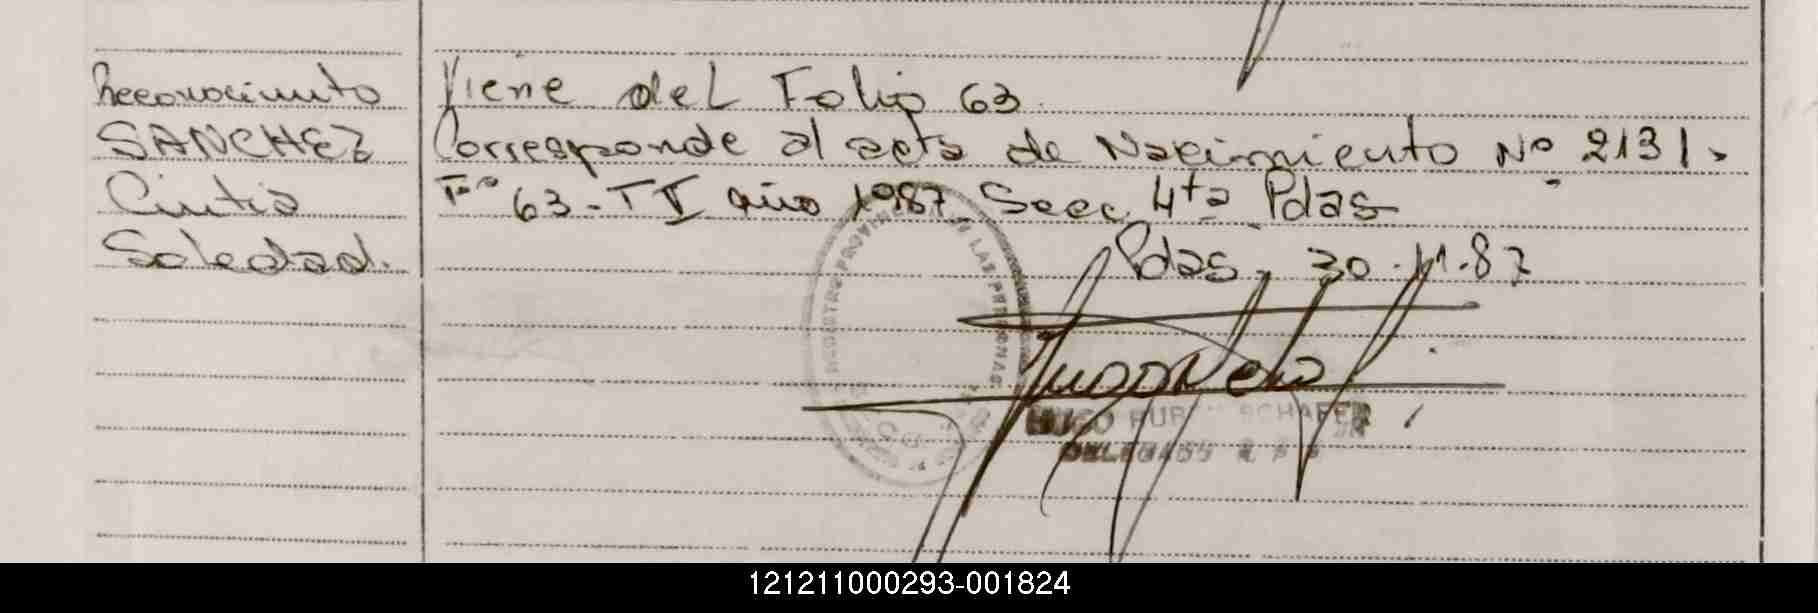 Reconocimiento
SANCHEZ
Cintia
Soledad.
Viene del Folio 63.
Corresponde al acta de Nacimiento Nº 2131.
Fº 63 - T II año 1987. Secc. 4ta Pdas
Pdas, 30.11.87
REGISTRO PROVINCIAL DE LAS PERSONAS
HUGO RUBEN SCHAFER
121211000293-001824